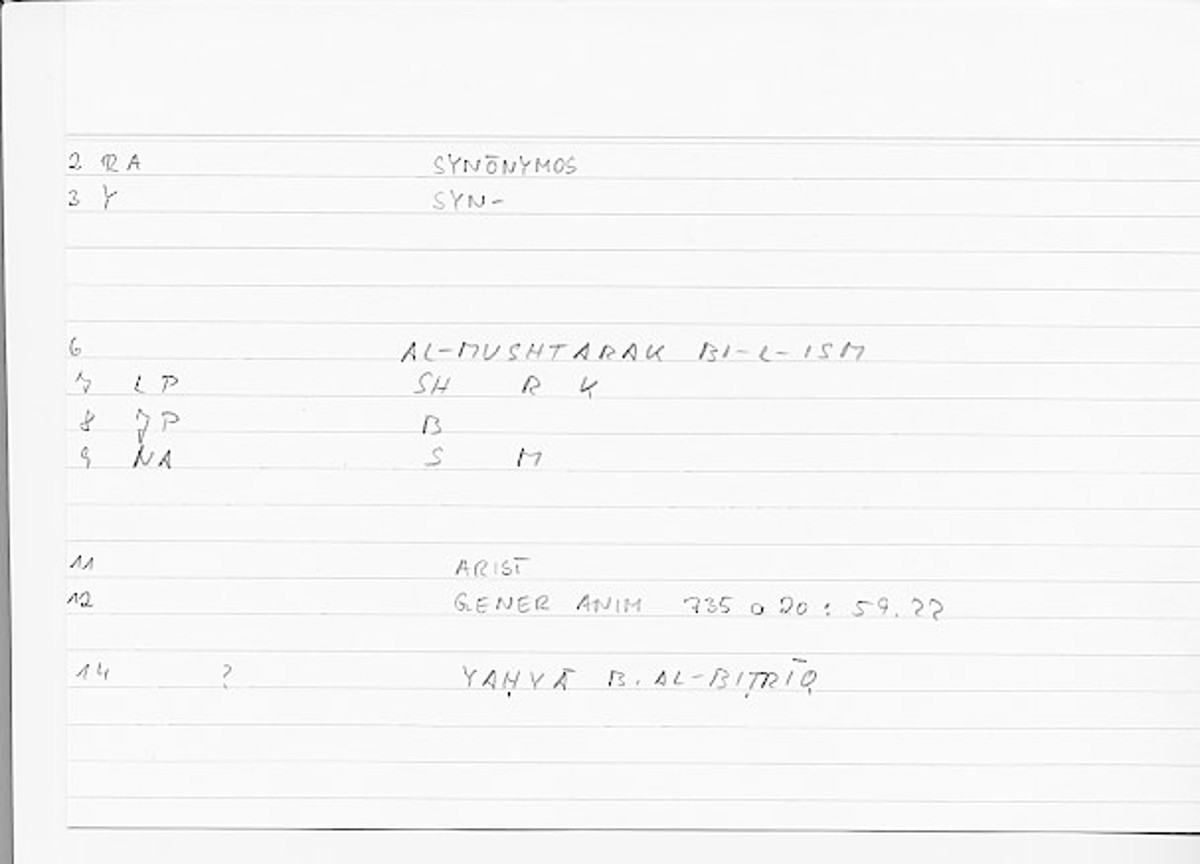 2 RA SYNŌNYMOS
3 Y SYN-
6 AL-MUSHTARAK BI-L-ISM
7 LP SH R K
8 JP B
9 NA S M
11 ARIST
12 GENER ANIM 735 a 20 : 59.22
14 ? YAḤYĀ B. AL-BIṬRĪQ